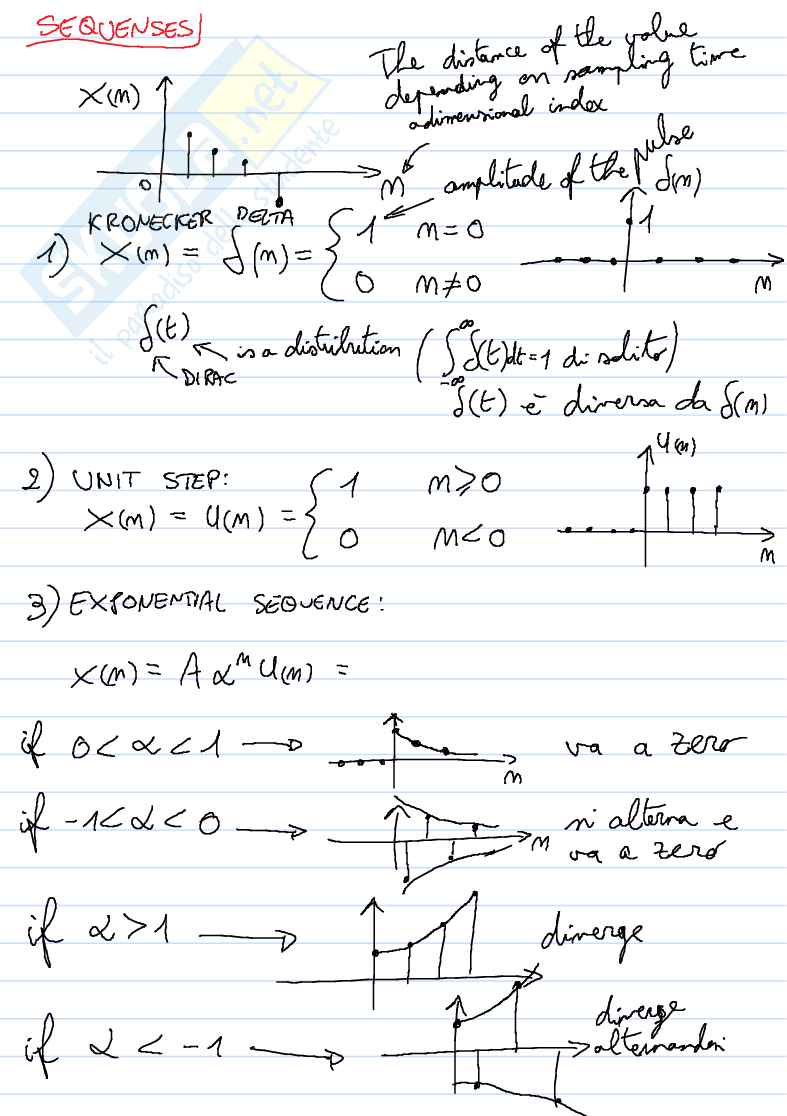 SEQUENSES
The distance of the value
depending on sampling time
adimensional index
X(n)
0
n
amplitude of the pulse
KRONECKER DELTA
1) X(n) = δ(n) = { 1 n = 0
0 n ≠ 0
δ(n)
1
n
δ(t) is a distribution ( ∫_{-∞}^{∞} δ(t)dt = 1 di solito)
DIRAC
δ(t) è diversa da δ(n)
2) UNIT STEP:
X(n) = U(n) = { 1 n ⩾ 0
0 n < 0
U(n)
n
3) EXPONENTIAL SEQUENCE:
X(n) = A α^n U(n) =
if 0 < α < 1
n
va a zero
if -1 < α < 0
n
si alterna e
va a zero
if α > 1
diverge
if α < -1
diverge
alternandosi
skuola.net
il paradiso dello studente